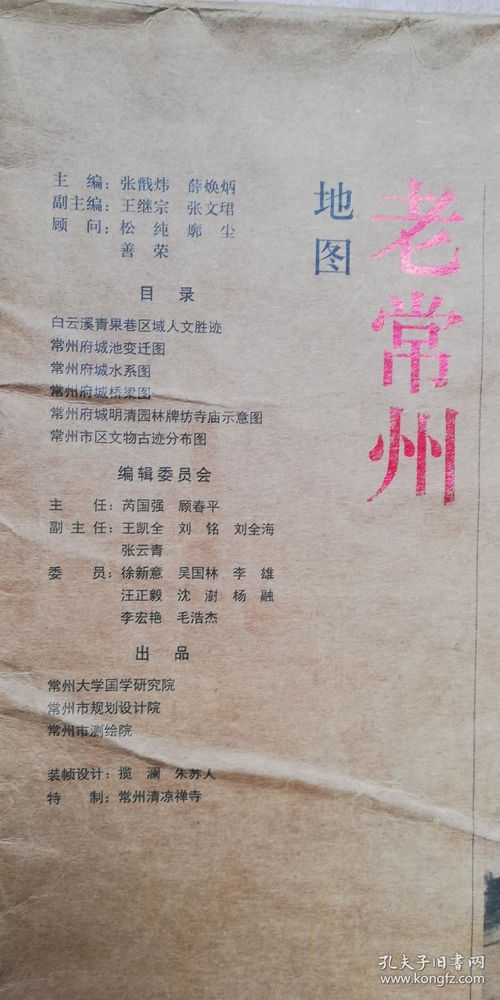 老常州
地图
主 编：张戬炜 薛焕炳
副主编：王继宗 张文珺
顾 问：松 纯 廓 尘
善 荣
目 录
白云溪青果巷区域人文胜迹
常州府城池变迁图
常州府城水系图
常州府城桥梁图
常州府城明清园林牌坊寺庙示意图
常州市区文物古迹分布图
编辑委员会
主 任：芮国强 顾春平
副 主 任：王凯全 刘 铭 刘全海
张云青
委 员：徐新意 吴国林 李 雄
汪正毅 沈 澍 杨 融
李宏艳 毛浩杰
出 品
常州大学国学研究院
常州市规划设计院
常州市测绘院
装帧设计：揽 澜 朱苏人
特 制：常州清凉禅寺
孔夫子旧书网
www.kongfz.com